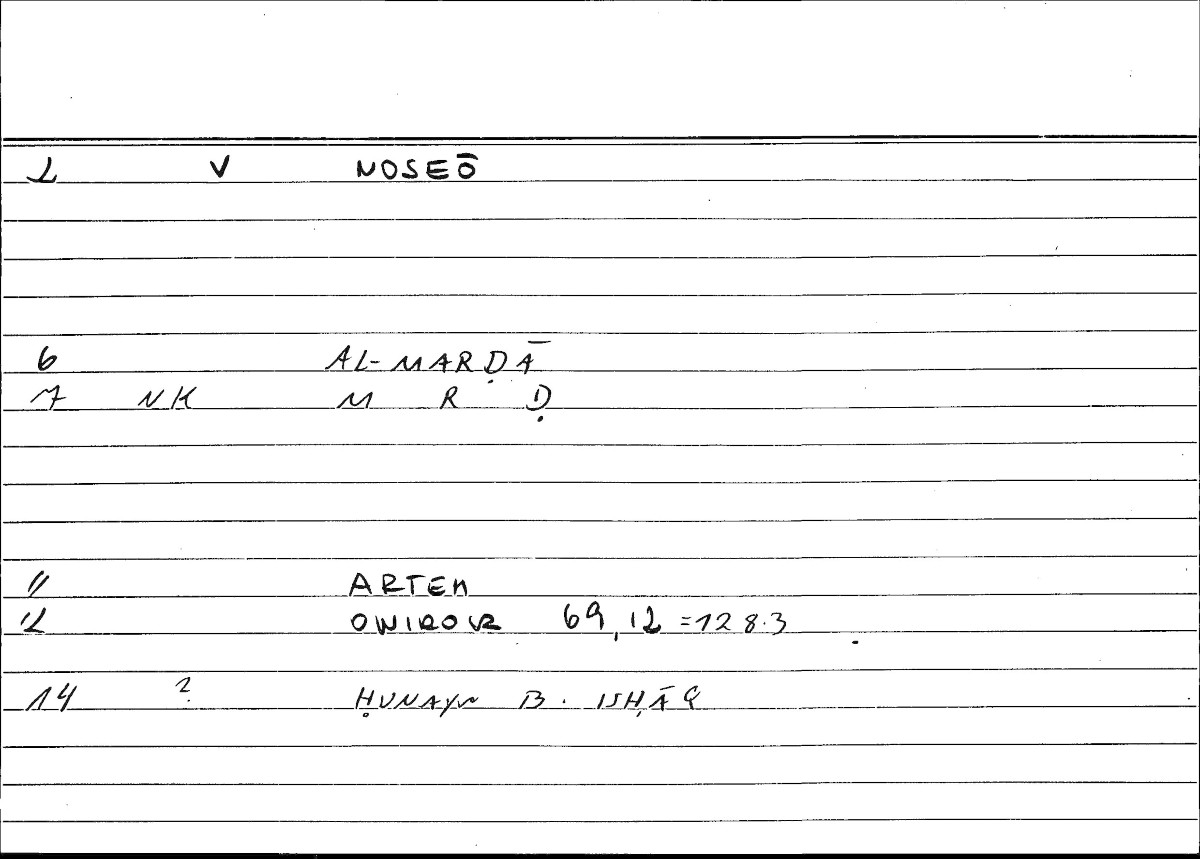 2 V NOSEŌ
6 AL-MARḌĀ
7 NK M R Ḍ
11 ARTEM
12 ONIROCR 69,12 =128.3
14 ? ḤUNAYN B. ISḤĀQ